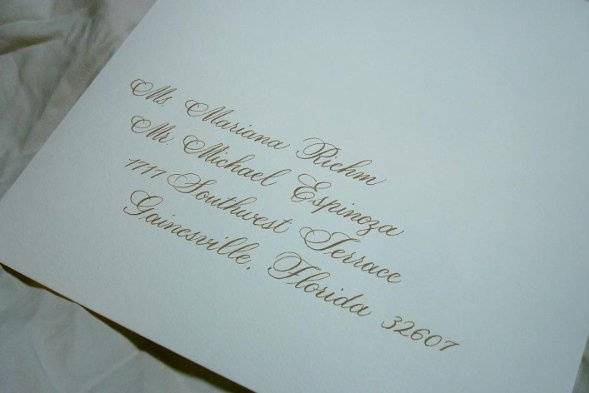 Ms. Mariana Riehm
Mr. Michael Espinoza
1717 Southwest Terrace
Gainesville, Florida 32607